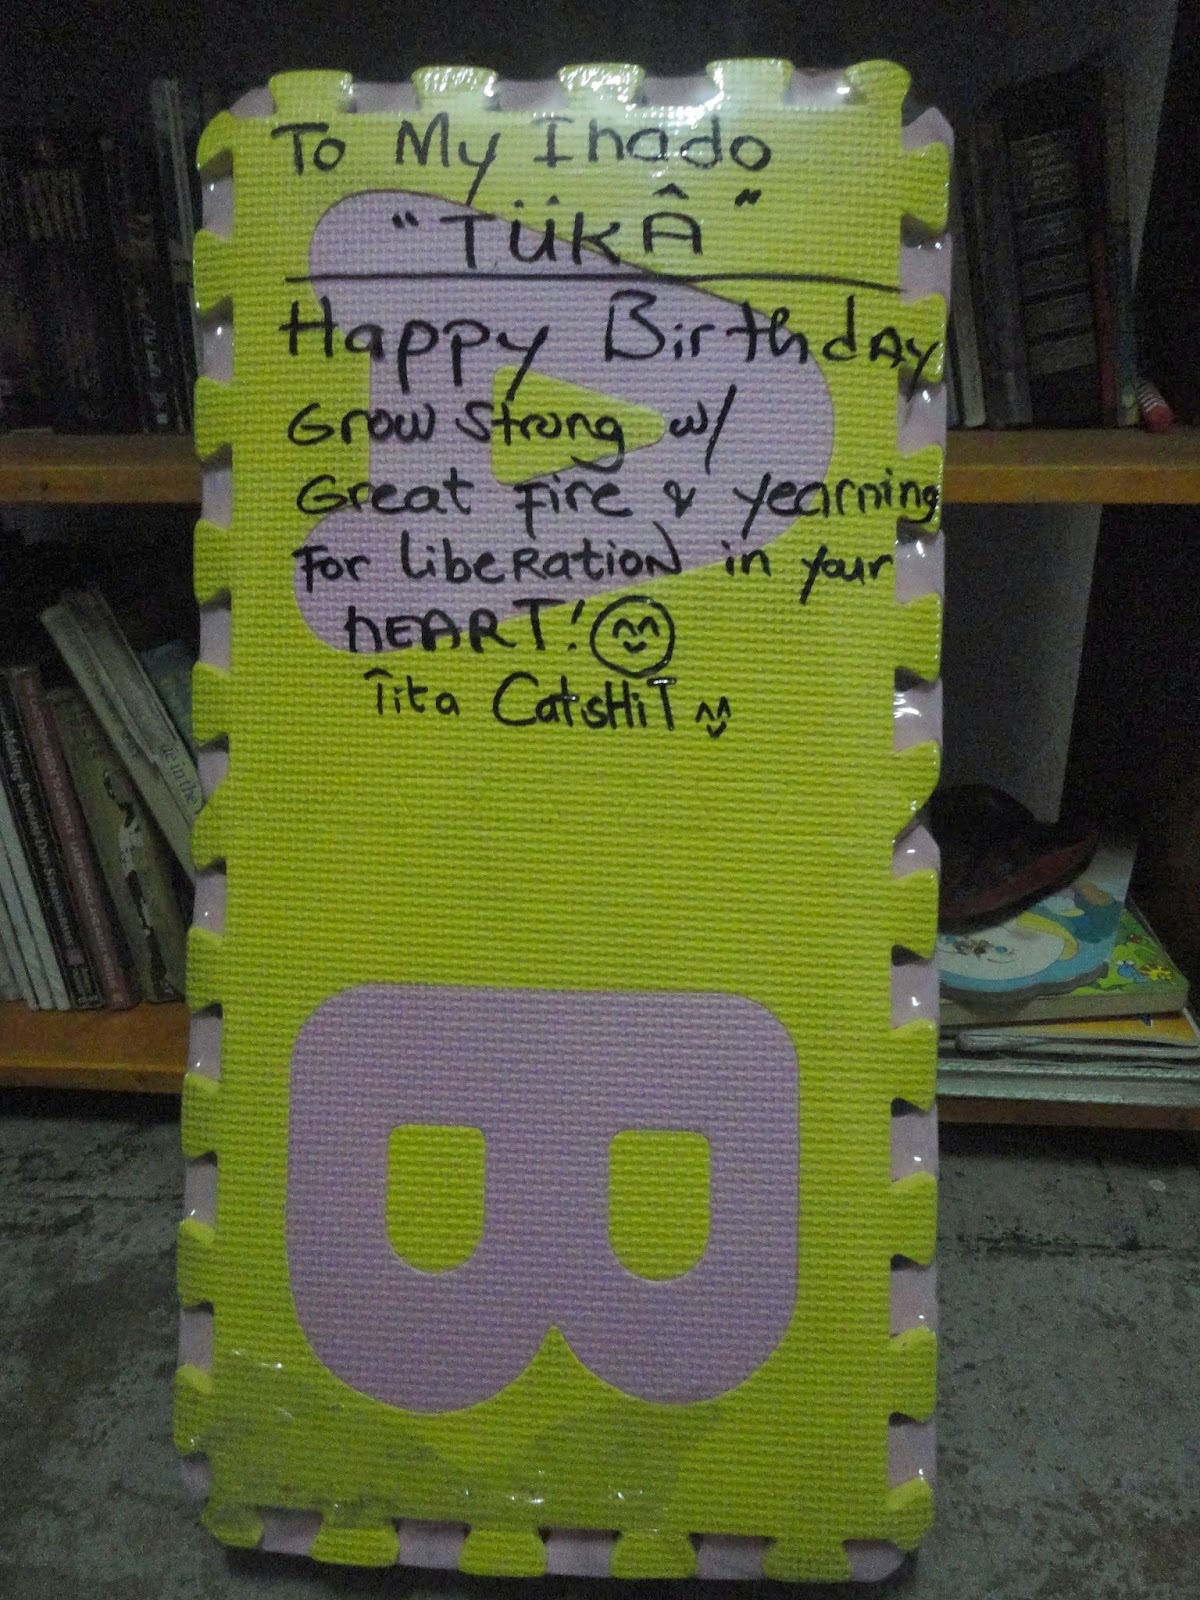 To My Inado
"TÜKÂ"
Happy BirthdAY
Grow Strong w/
Great fire & yearning
For LibeRatioN in your
hEART!
Tita CatsHiT
B